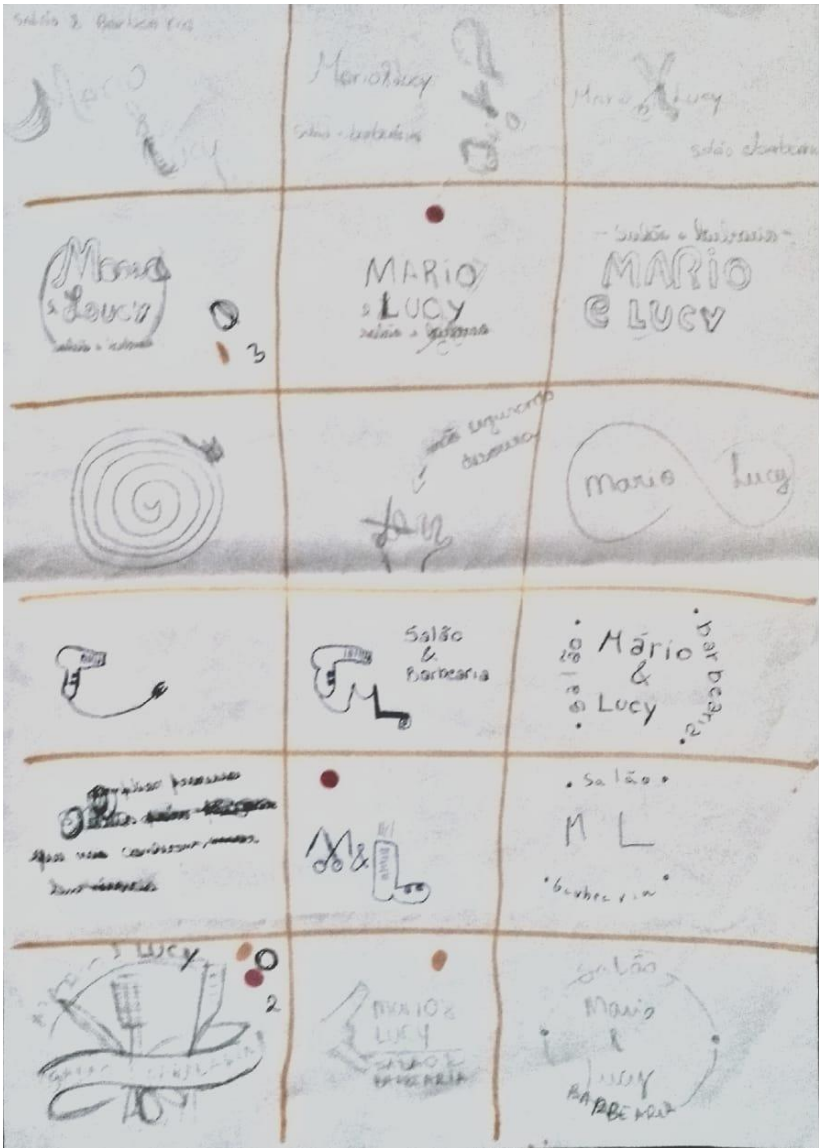 Salão & Barbearia
Mario
Lucy
Mario & Lucy
Salão e barbearia
Mario
Lucy
salão e barbearia
Mario
e Loucy
salão e barbearia
3
MARIO
e LUCY
salão e barbearia
- salão e barbearia -
MARIO
e LUCY
mão segurando
tesoura
Mario
Lucy
Salão
&
Barbearia
• salão •
Mário
&
Lucy
• barbearia •
M & L
• Salão •
M L
• barbearia •
MARIO & LUCY
2
MARIO &
LUCY
SALÃO &
BARBEARIA
Salão
Mario
&
Lucy
BARBEARIA